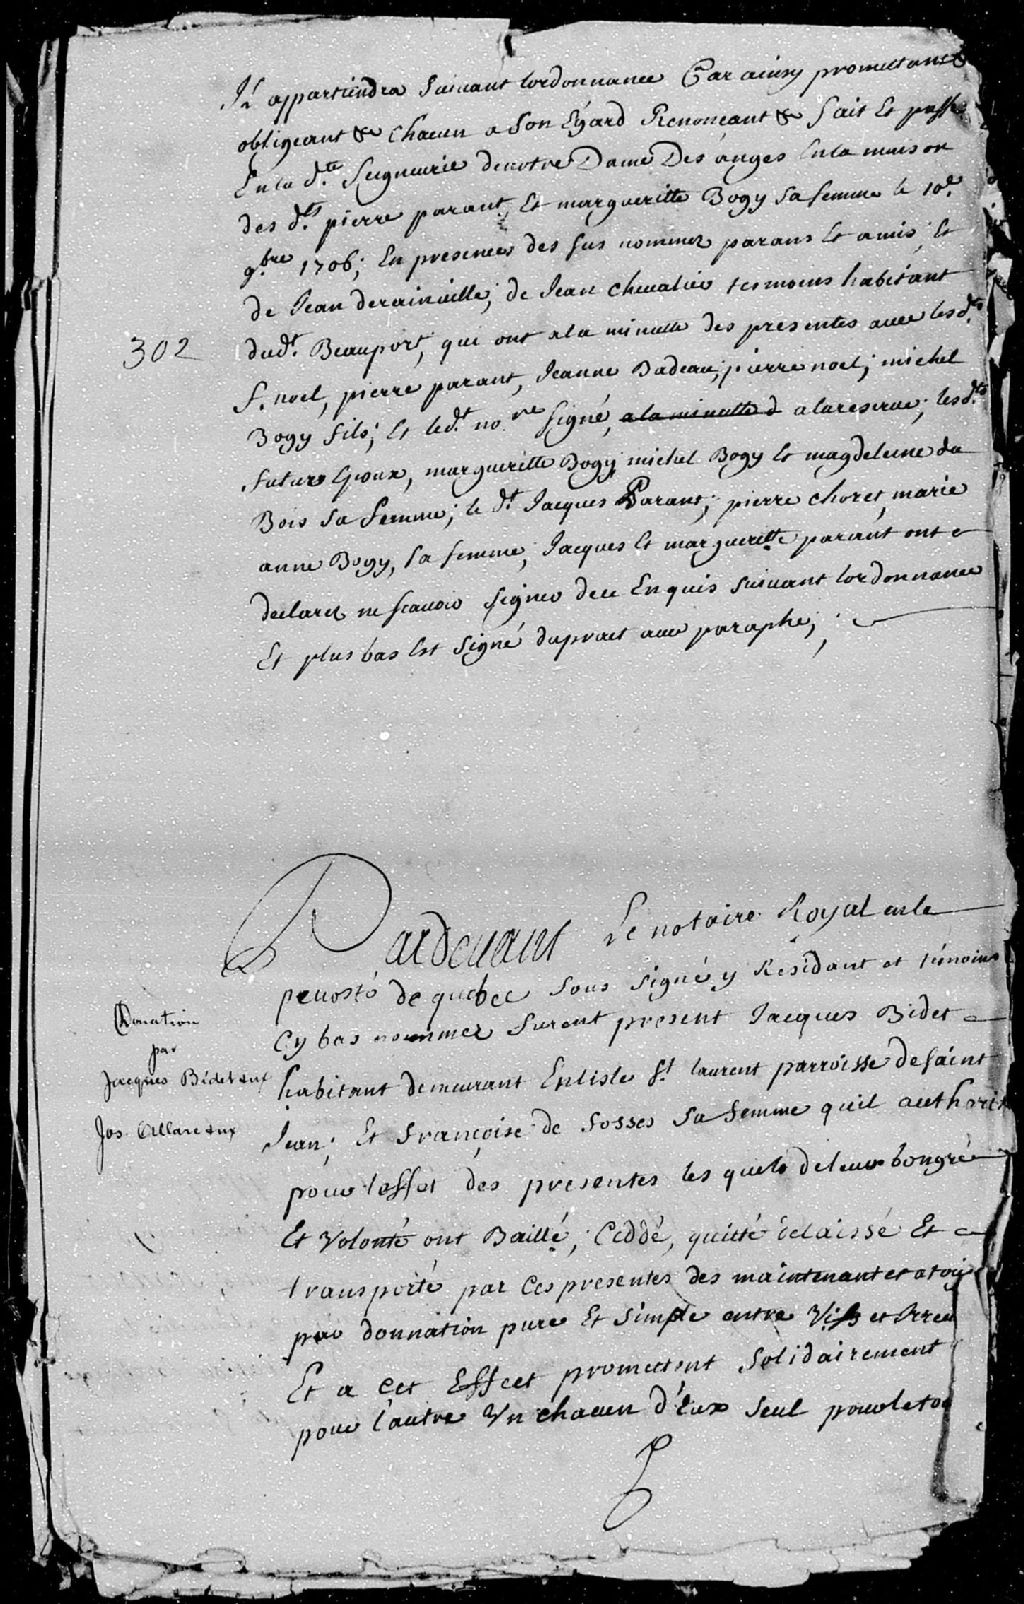 Il appartiendra suivant lordonnance Car ainsy promettant &
obligeant &c chacun a son Egard Renonceant &c fait Et passé
En la dte Seigneurie de notre Dame Des anges En la maison
des dts pierre parant, Et margueritte Bogy sa femme le 10e
9bre 1706; En presence des sus nommez parans Et amis, Et
de Jean derainville, de Jean chevalier temoins habitant
dudt Beauport, qui ont a la minutte des presentes avec lesdts
S. noel, pierre parant, Jeanne Badeau, pierre noel; michel
302
Bogy fils; Et ledt nore signé, a la minutte d a la reserve; lesdts
futurs Epoux, margueritte Bogy, michel Bogy Et magdeleine du
Bois sa femme; le dt Jacques Parant; pierre choret, marie
anne Bogy, sa femme, Jacques Et margueritte parant ont
declaré ne scavoir signer de ce Enquis suivant lordonnance
Et plus bas Est signé dupract avec paraphe;
Pardevant Le notaire Royal en la
prevosté de quebec sous signé y Residant et témoins
Cy bas nommez furent present Jacques Bidet
habitant demeurant En lisle St laurent parroisse de saint
Jean; Et françoise de fosses sa femme quil authorise
pour leffet des presentes les quels de leur bongré
Et Volonté ont Baillé, Ceddé, quitté delaissé Et
transporté par Ces presentes des maintenant et a toujo
par donnation pure Et simple entre Vifs et Irrevo
Et a cet Effect promettent solidairement
pour l'autre Un chacun d'Eux seul pour le tou
Donation
par
Jacques Bidet & ux
Jos Allare & ux